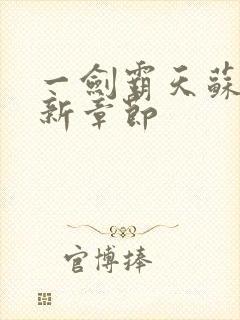 一劍霸天蘇
新章節
官博捧